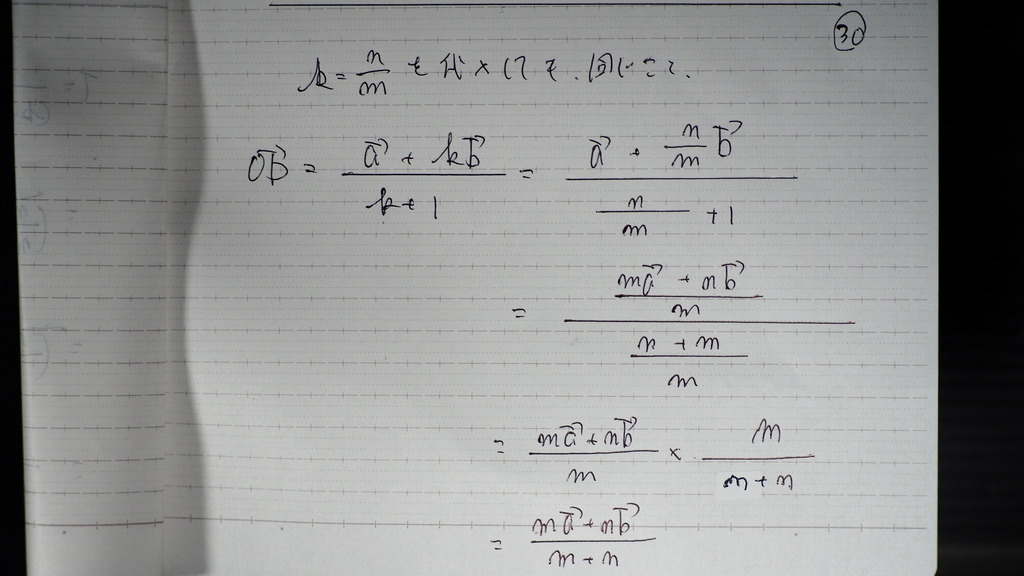 30
k = n/m を代入して、
OB→ = (a→ + kb→)/(k+1) = (a→ + (n/m)b→)/((n/m) + 1)
= ((ma→ + nb→)/m)/((n + m)/m)
= (ma→ + nb→)/m × m/(m + n)
= (ma→ + nb→)/(m + n)